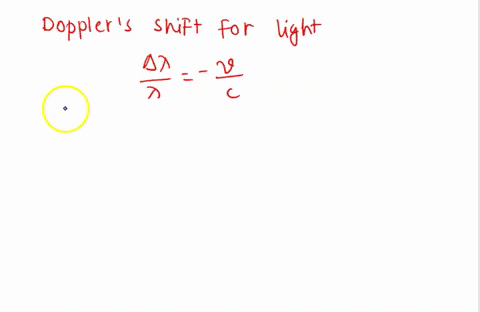 Doppler's shift for light
Δλ/λ = - v/c